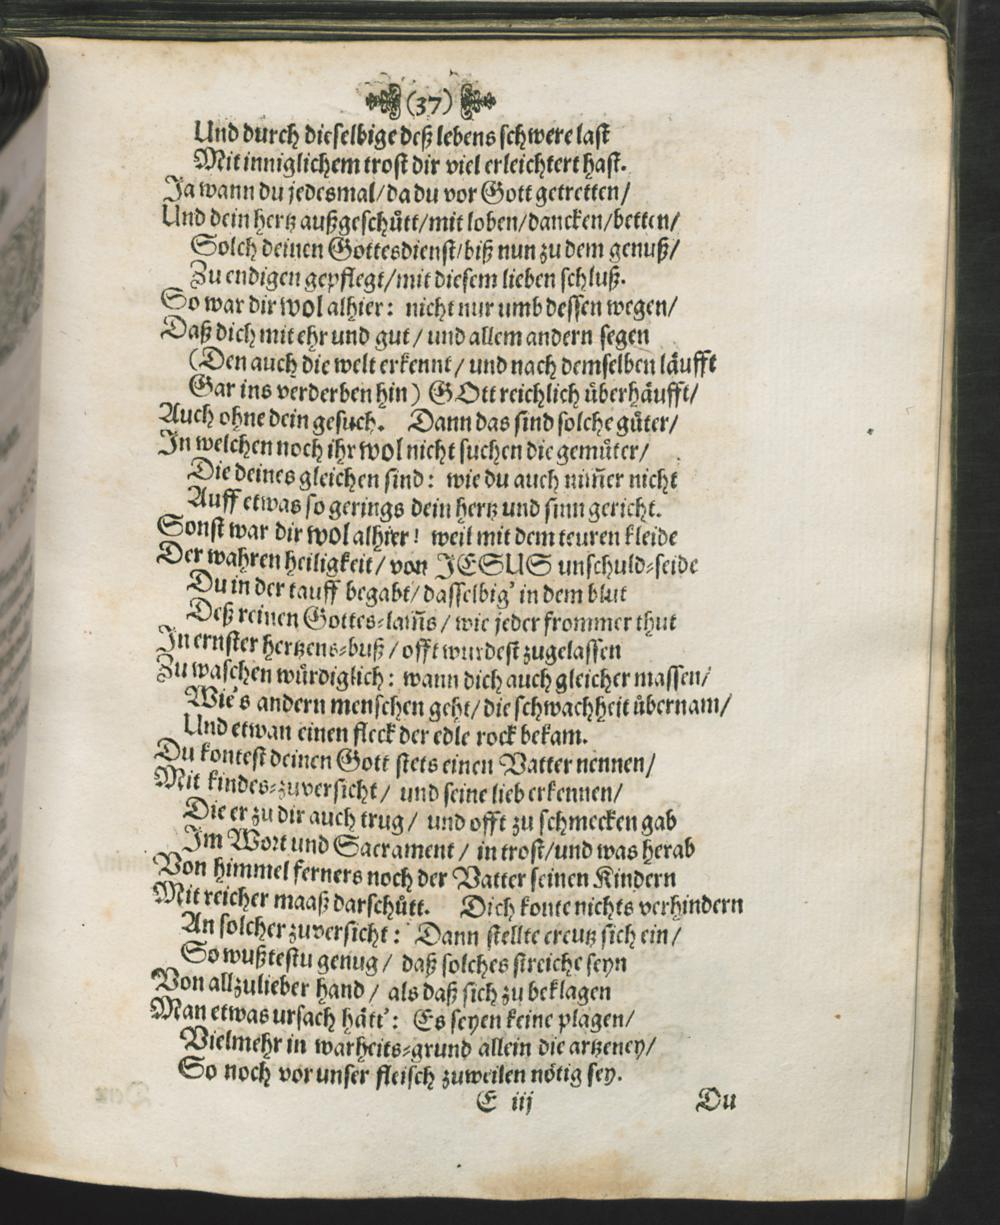 (37)
Und durch dieselbige deß lebens schwere last
Mit inniglichem trost dir viel erleichtert hast.
Ja wann du jedesmal/ da du vor Gott getretten/
Und dein hertz außgeschütt/ mit loben/ dancken/ betten/
Solch deinen Gottesdienst/ biß nun zu dem genuß/
Zu endigen gepflegt/ mit diesem lieben schluß.
So war dir wol alhier: nicht nur umb dessen wegen/
Daß dich mit ehr und gut/ und allem andern segen
(Den auch die welt erkennt/ und nach demselben läufft
Gar ins verderben hin) GOtt reichlich überhäufft/
Auch ohne dein gesuch. Dann das sind solche güter/
In welchen noch ihr wol nicht suchen die gemüter/
Die deines gleichen sind: wie du auch nim̃er nicht
Auff etwas so gerings dein hertz und sinn gericht.
Sonst war dir wol alhier! weil mit dem teuren kleide
Der wahren heiligkeit/ von JESUS unschuld-seide
Du in der tauff begabt/ dasselbig' in dem blut
Deß reinen Gottes-lam̃s/ wie jeder frommer thut
In ernster hertzens-buß/ offt wurdest zugelassen
Zu waschen würdiglich: wann dich auch gleicher massen/
Wie's andern menschen geht/ die schwachheit übernam/
Und etwan einen fleck der edle rock bekam.
Du kontest deinen Gott stets einen Vatter nennen/
Mit kindes-zuversicht/ und seine lieb erkennen/
Die er zu dir auch trug/ und offt zu schmecken gab
Im Wort und Sacrament/ in trost/ und was herab
Von himmel ferners noch der Vatter seinen Kindern
Mit reicher maaß darschütt. Dich konte nichts verhindern
An solcher zuversicht: Dann stellte creutz sich ein/
So wußtestu genug/ daß solches streiche seyn
Von allzulieber hand/ als daß sich zu beklagen
Man etwas ursach hätt': Es seyen keine plagen/
Vielmehr in warheits-grund allein die artzeney/
So noch vor unser fleisch zuweilen nötig sey.
E iij Du